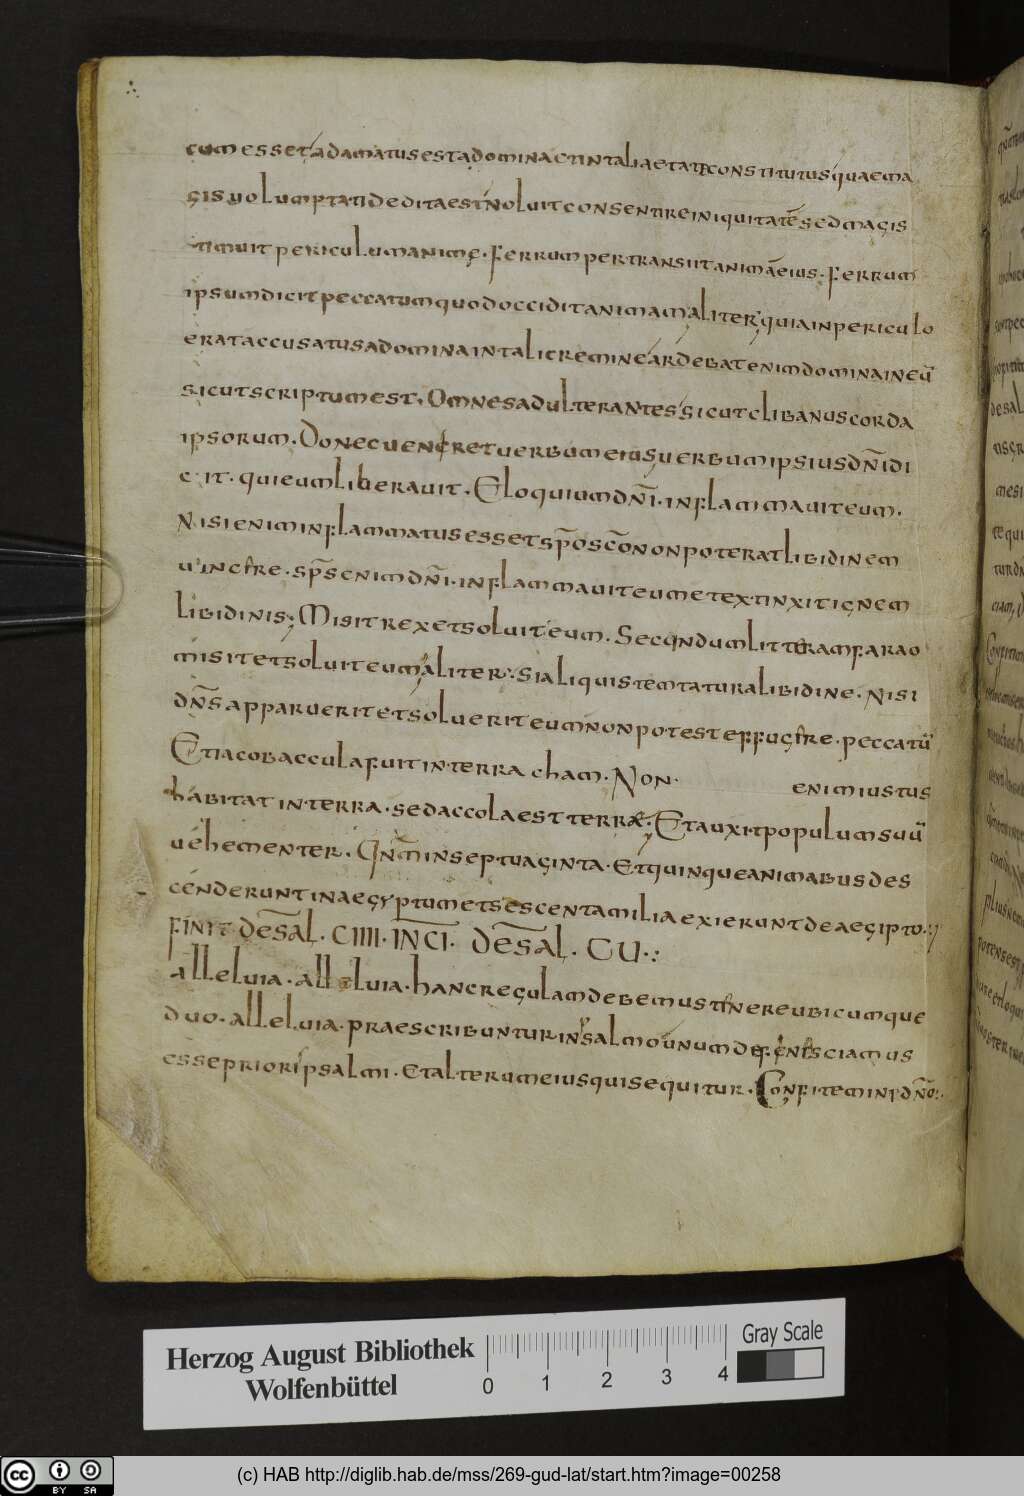 cum esset adamatus est a domina et in tali aetate constitutus quae ma
gis uoluptati dedita est noluit consentire iniquitatē sed magis
timuit periculum animę. Ferrum pertransiit animā eius. Ferrum
ipsum dicit peccatum quod occidit animam aliter quia in periculo
erat accusatus a domina in tali crimine ardebat enim domina in eū
sicut scriptum est. Omnes adulterantes sicut clibanus corda
ipsorum. Donec ueniret uerbum eius uerbum ipsius dn̄i di
cit. qui eum liberauit. Eloquium dn̄i. inflammauit eum.
Nisi enim inflammatus esset sp̄o sc̄o non poterat libidinem
uincere. sp̄s enim dn̄i. inflammauit eum et extinxit ignem
libidinis; Misit rex et soluit eum. Secundum litteram farao
misit et soluit eum aliter. Si aliquis temtatur a libidine. nisi
dn̄s apparuerit et soluerit eum non potest effugire. peccatū
Et iacob accula fuit in terra cham. Non. enim iustus
habitat in terra. sed accola est terrae. Et auxit populum suū
uehementer. in septuaginta. et quinque animabus des
cenderunt in aegyptum et sescenta milia exierunt de aegipto.
FINIT de sāl. CIIII. INCĪ. de sāl. CU.
alleluia. alleluia. hanc regulam debemus tenere ubicumque
duo. alleluia. praescribuntur in salmo unum de fine sciamus
esse prioris psalmi. et alterum eius qui sequitur. Confitemini dn̄o.
Herzog August Bibliothek
Wolfenbüttel
0 1 2 3 4
Gray Scale
cc BY SA
(c) HAB http://diglib.hab.de/mss/269-gud-lat/start.htm?image=00258